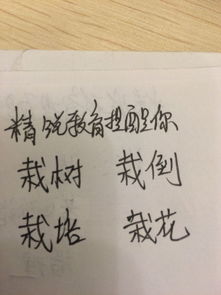 精锐教育提醒你
栽树 栽倒
栽培 栽花